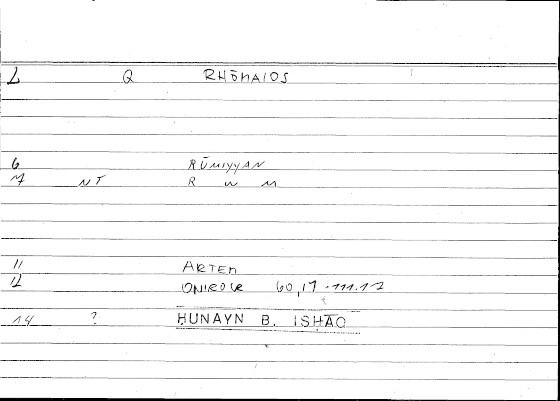 L Q RHŌMAIOS
6 RŪMIYYAN
7 NT R W M
11 ARTEM
12 ONIROCR 60,17 - 111.12
14 ? HUNAYN B. ISHĀQ